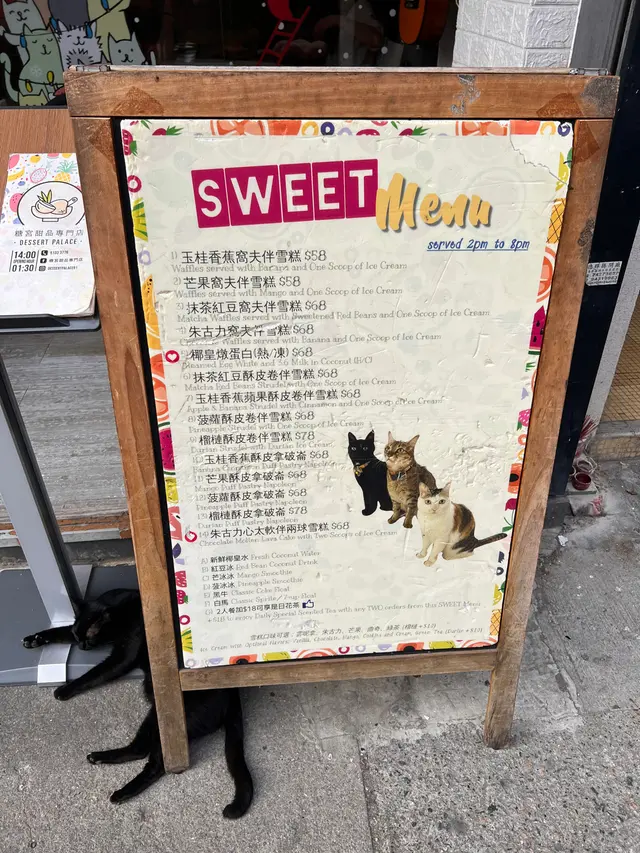 SWEET Menu
served 2pm to 8pm
1) 玉桂香蕉窩夫伴雪糕 $58
Waffles served with Banana and One Scoop of Ice Cream
2) 芒果窩夫伴雪糕 $58
Waffles served with Mango and One Scoop of Ice Cream
抹茶紅豆窩夫伴雪糕 $68
Matcha Waffles served with Sweetened Red Beans and One Scoop of Ice Cream
朱古力窩夫伴雪糕 $68
Waffles served with Banana and One Scoop of Ice Cream
椰皇燉蛋白(熱/凍) $68
Steamed Egg White and Milk in Coconut (H/C)
抹茶紅豆酥皮卷伴雪糕 $68
Matcha Red Beans Strudel with One Scoop of Ice Cream
玉桂香蕉蘋果酥皮卷伴雪糕 $68
Apple & Banana Strudel with Cinnamon and One Scoop of Ice Cream
8) 菠蘿酥皮卷伴雪糕 $68
Pineapple Strudel with One Scoop of Ice Cream
榴槤酥皮卷伴雪糕 $78
Durian Strudel with Durian Ice Cream
玉桂香蕉酥皮拿破崙 $68
Banana Puff Pastry Napoleon
11) 芒果酥皮拿破崙 $68
Mango Puff Pastry Napoleon
12) 菠蘿酥皮拿破崙 $68
Pineapple Puff Pastry Napoleon
13) 榴槤酥皮拿破崙 $78
Durian Puff Pastry Napoleon
14) 朱古力心太軟伴兩球雪糕 $68
Chocolate Molten Lava Cake with Two Scoops of Ice Cream
A) 新鮮椰皇水 Fresh Coconut Water
B) 紅豆冰 Red Bean Coconut Drink
C) 芒冰冰 Mango Smoothie
D) 菠冰冰 Pineapple Smoothie
E) 黑牛 Classic Coke Float
F) 白馬 Classic Sprite / 7-up Float
G) 2人餐加$18可享是日花茶
+$18 to enjoy Daily Special Scented Tea with any TWO orders from this SWEET Menu
雪糕口味可選：雲呢拿、朱古力、芒果、曲奇、綠茶 (榴槤 +$10)
Ice Cream with Optional Flavors: Vanilla, Chocolate, Mango, Cookies and Cream, Green Tea (Durian + $10)
糖宮甜品專門店
- DESSERT PALACE -
14:00
OPENING HOUR
01:30
糖宮甜品專門店